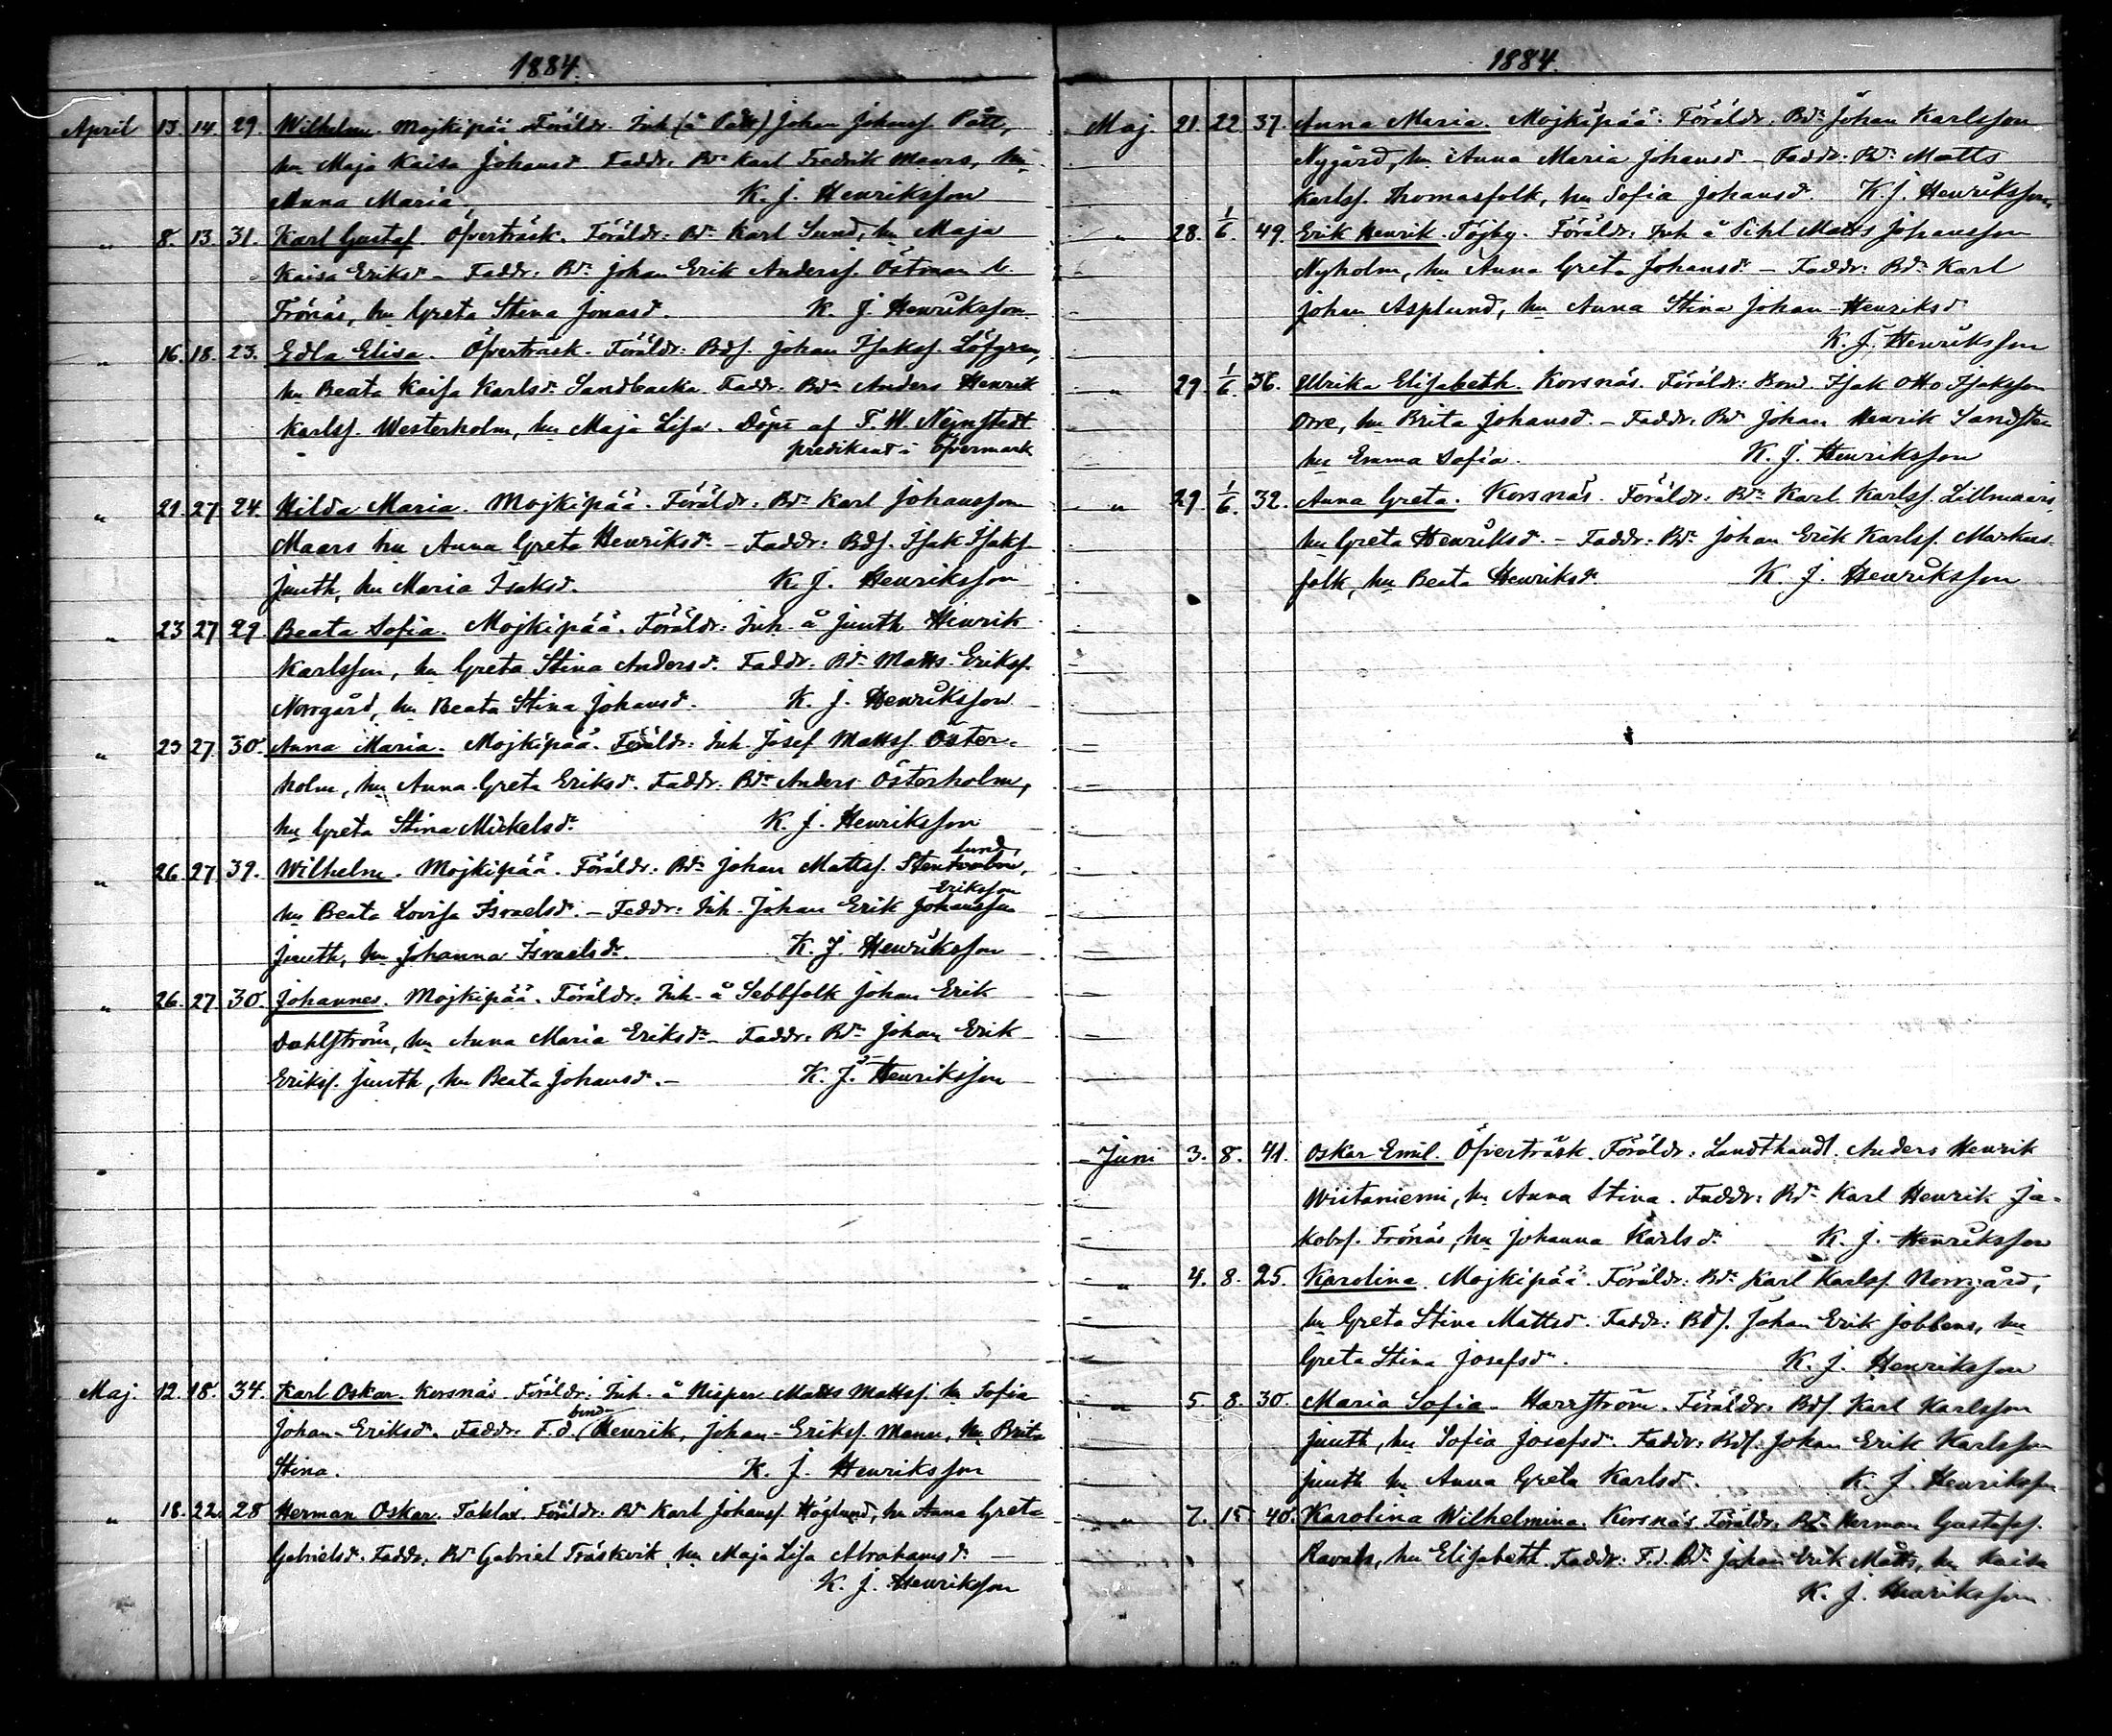 1884.
April 13. 14. 29. Wilhelm. Mojkipää Föräldr. Inh. (å Pått) Johan Johansf. Pått,
hu Maja Kaisa Johansdr. Faddr. Bdn Karl Fredrik Maars, hu
Anna Maria. K. J. Henriksson
" 8. 13. 31. Karl Gustaf. Öfverträsk. Föräldr: Bdn Karl Sund, hu Maja
Kaisa Eriksdr - Faddr: Bdn Johan Erik Andersf. Östman l.
Frönäs, hu Greta Stina Jonasdr. K. J. Henriksson
" 16. 18. 23. Edla Elisa. Öfverträsk. Föräldr: Bdf. Johan Isaksf. Löfgren,
hu Beata Kaisa Karlsdr Sandbacka. Faddr. Bdn Anders Henrik
Karlsf. Westerholm, hu Maja Lisa. Döpt af F. W. Nejmstedt
predikant i Öfvermark
" 21. 27. 24. Hilda Maria. Mojkipää. Föräldr: Bdn Karl Johansson
Maars hu Anna Greta Henriksdr - Faddr: Bdf. Isak Isaksf.
Juuth, hu Maria Isaksdr. K. J. Henriksson
" 23 27 29. Beata Sofia. Mojkipää. Föräldr: Inh. å Juuth Henrik
Karlsson, hu Greta Stina Andersdr. Faddr. Bdn Matts Eriksf.
Norrgård, hu Beata Stina Johansdr. K. J. Henriksson
" 23 27. 30. Anna Maria. Mojkipää. Föräldr: Inh. Josef Mattsf. Öster-
holm, hu Anna Greta Eriksdr. Faddr. Bdn Anders Österholm,
hu Greta Stina Mickelsdr. K. J. Henriksson
lund,
" 26. 27. 39. Wilhelm. Mojkipää. Föräldr: Bdn Johan Mattsf. Stenholm,
Eriksson
hu Beata Lovisa Israelsdr. - Faddr: Inh. Johan Erik Johansson
Juuth, hu Johanna Israelsdr. K. J. Henriksson
" 26. 27. 30. Johannes. Mojkipää. Föräldr. Inh. å Sebbfolk Johan Erik
Dahlström, hu Anna Maria Eriksdr - Faddr: Bdn Johan Erik
Eriksf. Juuth, hu Beata Johansdr. - K. J. Henriksson
Maj. 12. 18. 34. Karl Oskar. Korsnäs. Föräldr: Inh. å Nisper Matts Mattsf. hu Sofia
bond
Johan-Eriksdr. Faddr. F.d. Henrik, Johan-Eriksf. Mann, hu Brita
Stina. K. J. Henriksson
" 18. 22. 28 Herman Oskar. Taklax. Föräldr: Bdn Karl Johansf. Höglund, hu Anna Greta
Gabrielsdr. Faddr. Bdn Gabriel Träskvik, hu Maja Lisa Abrahamsdr. -
K. J. Henriksson
1884.
Maj. 21. 22 37. Anna Maria. Mojkipää. Föräldr. Bdn Johan Karlsson
Nygård, hu Anna Maria Johansdr - Faddr: Bdn Matts
Karlsf. Thomasfolk, hu Sofia Johansdr. K. J. Henriksson
" 28. 1/6. 49. Erik Henrik. Töjby. Föräldr: Inh å Sihl Matts Johansson
Nyholm, hu Anna Greta Johansdr - Faddr: Bdn Karl
Johan Asplund, hu Anna Stina Johan-Henriksdr
K. J. Henriksson
" 29. 1/6. 36. Ulrika Elisabeth. Korsnäs. Föräldr: Bond. Isak Otto Isaksson
Orre, hu Brita Johansdr. - Faddr. Bdn Johan Henrik Sandsten
hu Emma Sofia. K. J. Henriksson
" 29. 1/6. 32. Anna Greta. Korsnäs. Föräldr: Bdn Karl Karlsf. Lillmaars,
hu Greta Henriksdr. - Faddr: Bdn Johan Erik Karlsf. Markus-
folk, hu Beata Henriksdr. K. J. Henriksson
Juni 3. 8. 41. Oskar Emil. Öfverträsk. Föräldr: Landthandl. Anders Henrik
Wiitaniemi, hu Anna Stina. Faddr: Bdn Karl Henrik Ja-
kobsf. Frönäs, hu Johanna Karlsdr. K. J. Henriksson
" 4. 8. 25. Karolina. Mojkipää. Föräldr: Bdn Karl Karlsf. Norrgård,
hu Greta Stina Mattsdr. Faddr: Bdf. Johan Erik Jobbens, hu
Greta Stina Josefsdr. K. J. Henriksson
" 5 8. 30. Maria Sofia. Harrström. Föräldr: Bdf. Karl Karlsson
Juuth, hu Sofia Josefsdr. Faddr: Bdf. Johan Erik Karlsson
Juuth hu Anna Greta Karlsdr. K. J. Henriksson
" 7. 15 40. Karolina Wilhelmina. Korsnäs. Föräldr. Bdn Herman Gustafsf.
Ravals, hu Elisabeth. Faddr: F.d. Bdn Johan Erik Mätts, hu Kaisa
K. J. Henriksson